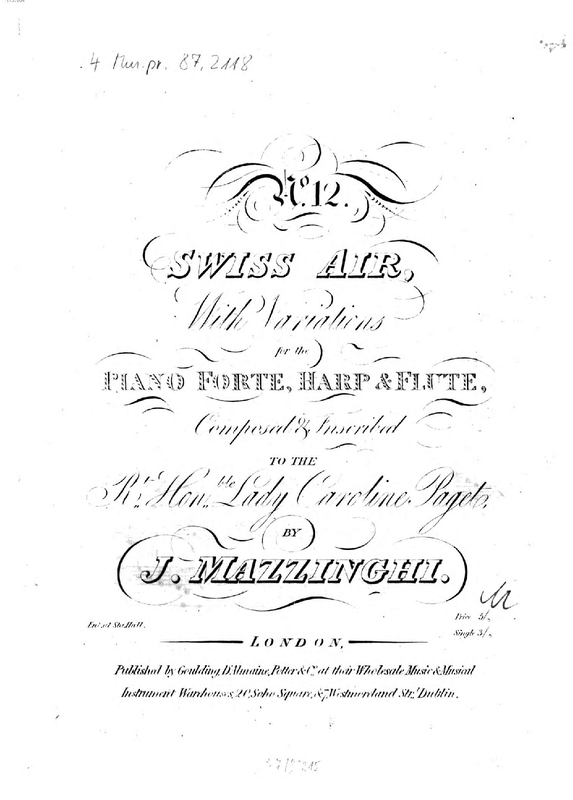 4 Mus.pr. 87.2118
No. 12.
SWISS AIR,
With Variations
for the
PIANO FORTE, HARP & FLUTE,
Composed & Inscribed
TO THE
Rt. Honble. Lady Caroline Paget,
BY
J. MAZZINGHI.
Ent. at Sta. Hall.
Price 5/-
Single 3/-
LONDON,
Published by Goulding, D'Almaine, Potter & Co. at their Wholesale Music & Musical
Instrument Warehouses, 20, Soho Square, & 7, Westmorland Str. Dublin.